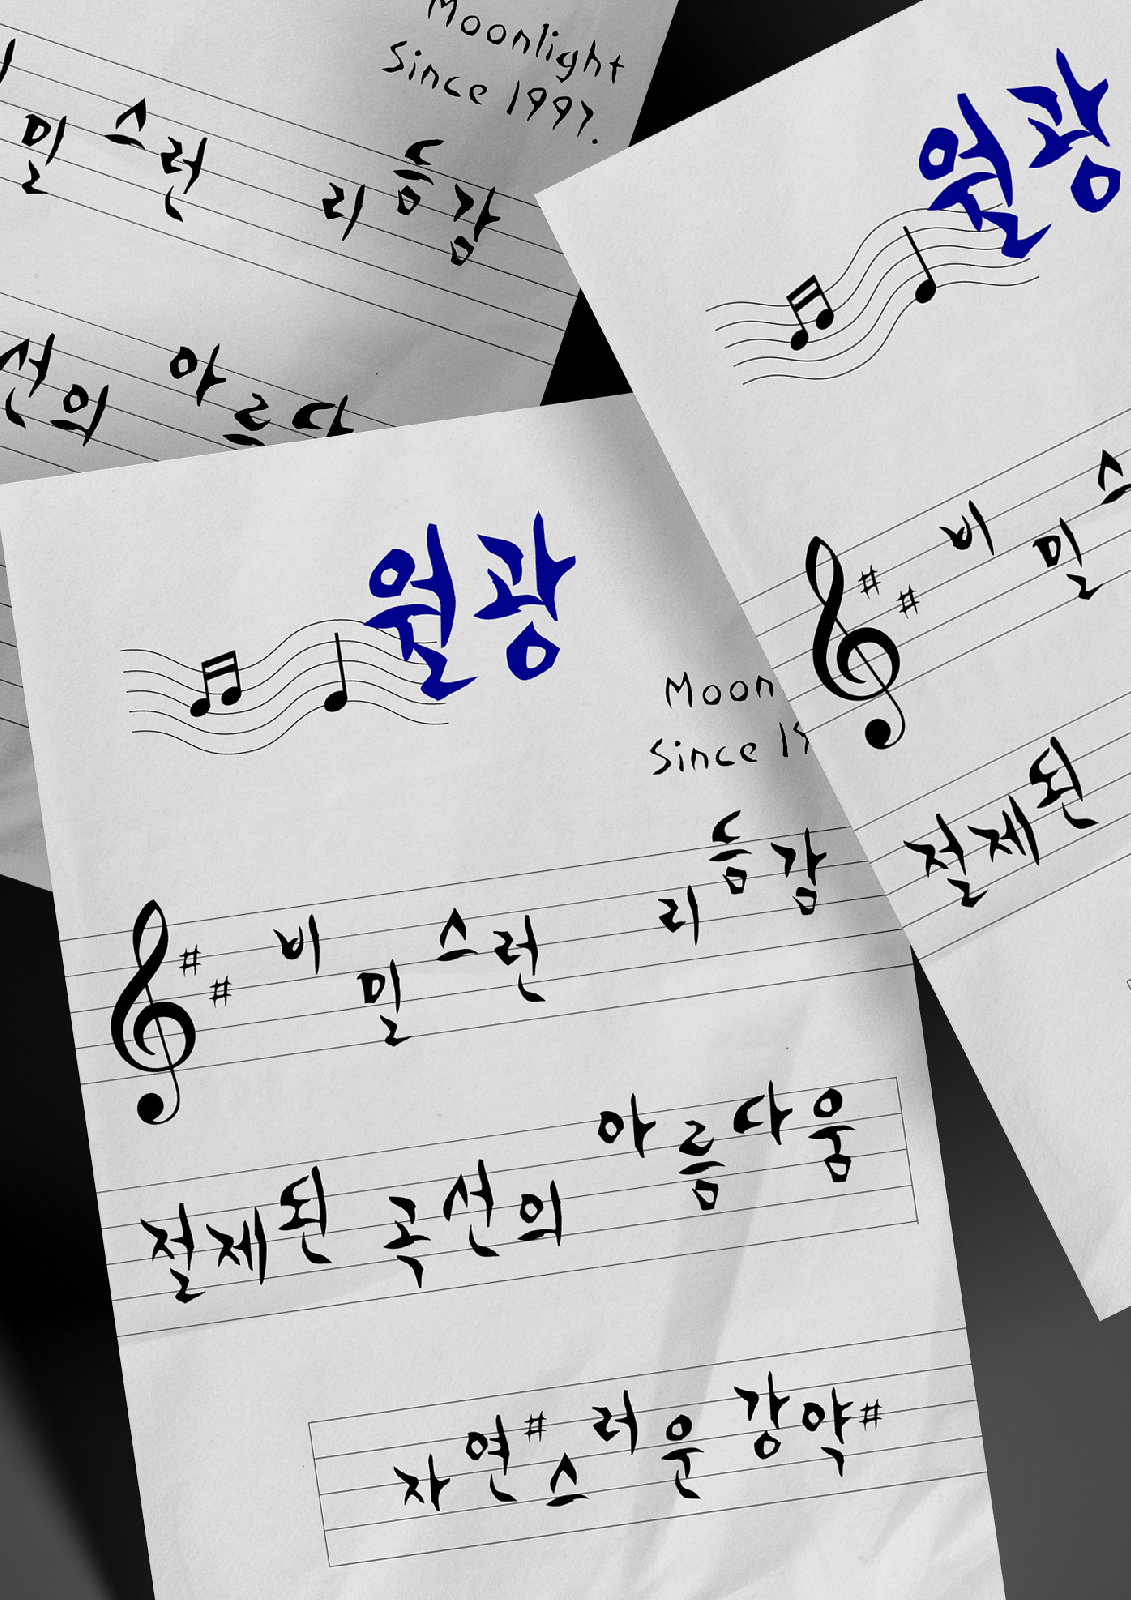 Moonlight
Since 1997.
밀 스런 리듬감
선의 아르다
월광
비밀스
절제된
월광
Moon
Since 19
비밀스런 리듬감
절제된 곡선의 아름다움
자연#스러운 강약#